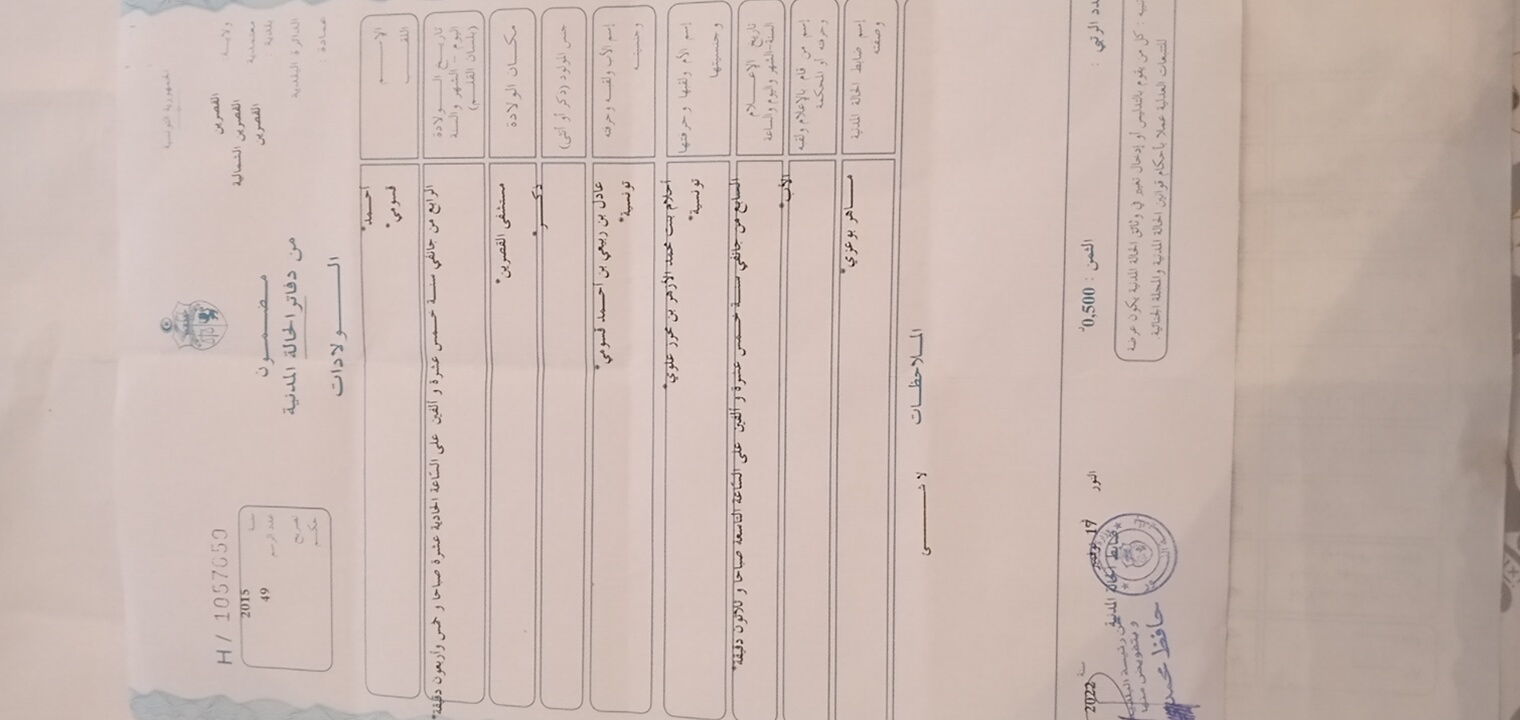 الجمهورية التونسية
ولاية : القصرين
معتمدية القصرين الشمالية
بلدية : القصرين
الدائرة البلدية
عمادة :
مضمون
من دفاتر الحالة المدنية
الولادات
H / 1057050
سنة 2015
عدد الرسم 49
تصريح
حكم
الاسم أحمد*
اللقب قسومي*
تاريخ الولادة
(اليوم - الشهر والسنة
بلسان القلم)
الرابع من جانفي سنة خمس عشرة و ألفين على الساعة الحادية عشرة صباحا و خمس واربعون دقيقة*
مكان الولادة
مستشفى القصرين*
جنس المولود (ذكر أو أنثى)
ذكر*
إسم الأب ولقبه وحرفته
وجنسيته
عادل بن ربيعي بن أحمد قسومي*
تونسية*
إسم الأم ولقبها وحرفتها
وجنسيتها
أحلام بنت محمد الأزهر بن محرز علوي*
تونسية*
تاريخ الإعلام
السنة-الشهر واليوم والساعة
السابع من جانفي سنة خمس عشرة و ألفين على الساعة التاسعة صباحا و ثلاثون دقيقة*
إسم من قام بالإعلام ولقبه
وحرفته أو المحكمة
الأب*
إسم ضابط الحالة المدنية
وصفته
ماهر بوعزي*
الملاحظات
لا شيء
الثمن : 0,500د
كل من يقوم بالتدليس أو إدخال تغيير في وثائق الحالة المدنية يكون عرضة
للتتبعات العدلية عملا بأحكام قوانين الحالة المدنية والمجلة الجنائية.
في 17 نوفمبر سنة 2022
ضابط الحالة المدنية
عن رئيسة البلدية
وبتفويض منها